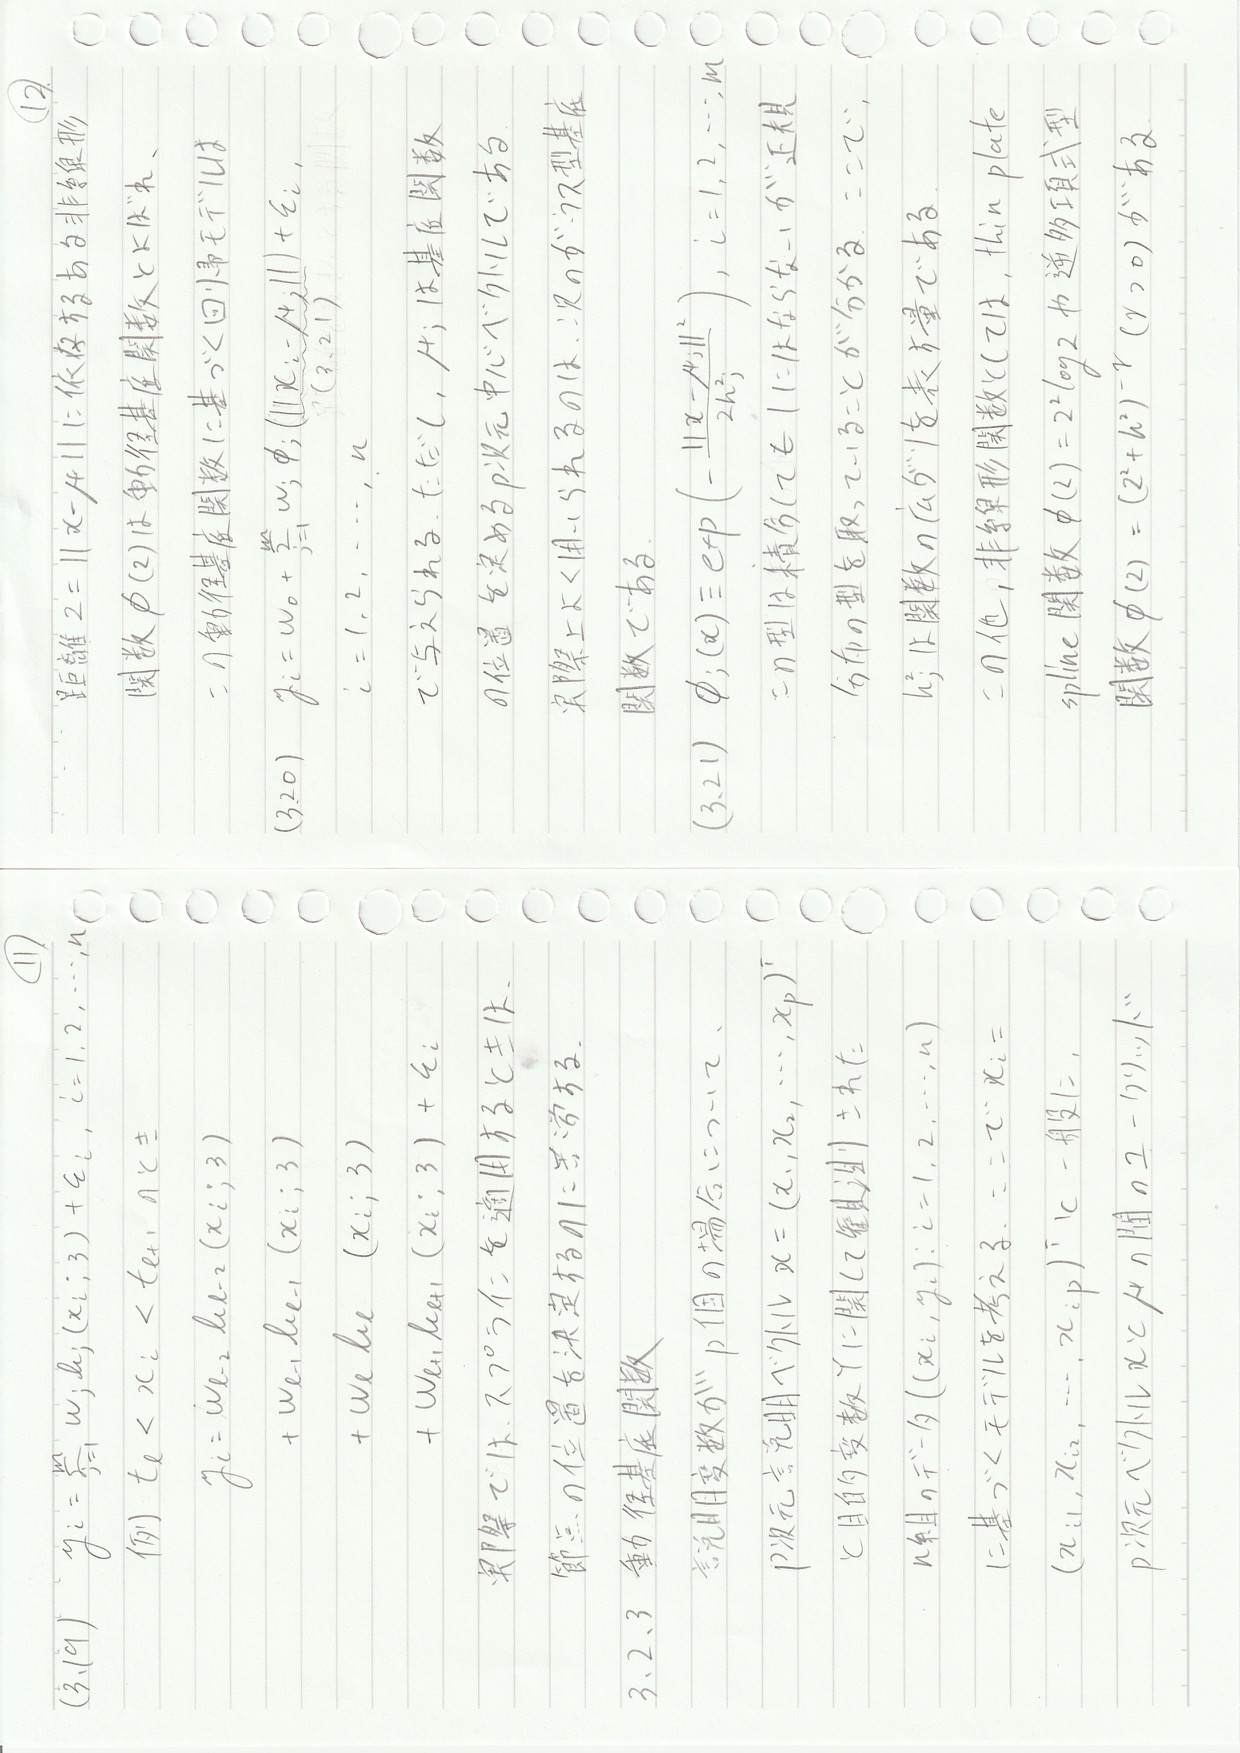 11
(3.19) yi = Σ_{j=1}^{m} wj bj (xi ; 3) + εi, i = 1, 2, ⋯, n
例) tℓ < xi < tℓ+1 のとき
yi = wℓ-2 bℓ-2 (xi ; 3)
+ wℓ-1 bℓ-1 (xi ; 3)
+ wℓ bℓ (xi ; 3)
+ wℓ+1 bℓ+1 (xi ; 3) + εi
実際では、スプラインを適用するときは、
節点の位置を決定するのに苦労する。
3.2.3 動径基底関数
説明変数が p個の場合について、
p次元説明ベクトル x = (x1, x2, ⋯, xp)ᵀ
と目的変数Yに関して観測された
n組のデータ((xi, yi) : i = 1, 2, ⋯, n)
に基づくモデルを考える。ここで xi =
(xi1, xi2, ⋯, xip)ᵀ と一般に,
p次元ベクトル x と μ の間のユークリッド
12
距離 z = ||x-μ|| に依存するある非線形
関数 φ(z) は動径基底関数とよばれ、
この動径基底関数に基づく回帰モデルは
(3.20) yi = w0 + Σ_{j=1}^{m} wj φj (||xi-μj||) + εi,
(3.21)
i = 1, 2, ⋯, n
で与えられる。ただし, μj は基底関数
の位置を定めるp次元中心ベクトルである。
実際上よく用いられるのは、次のガウス型基底
関数である。
(3.21) φj (x) ≡ exp ( - ||x-μj||² / 2h²j ), i = 1, 2, ⋯, m
この型は積分しても1にはならないが正規
分布の型を取っていることが分かる。ここで,
h²j は関数の広がりを表す量である。
この他, 非線形関数としては, thin plate
spline 関数 φ(z) = z² log z や逆多項式型
関数 φ(z) = (z²+h²)^{-γ} (γ>0) がある。